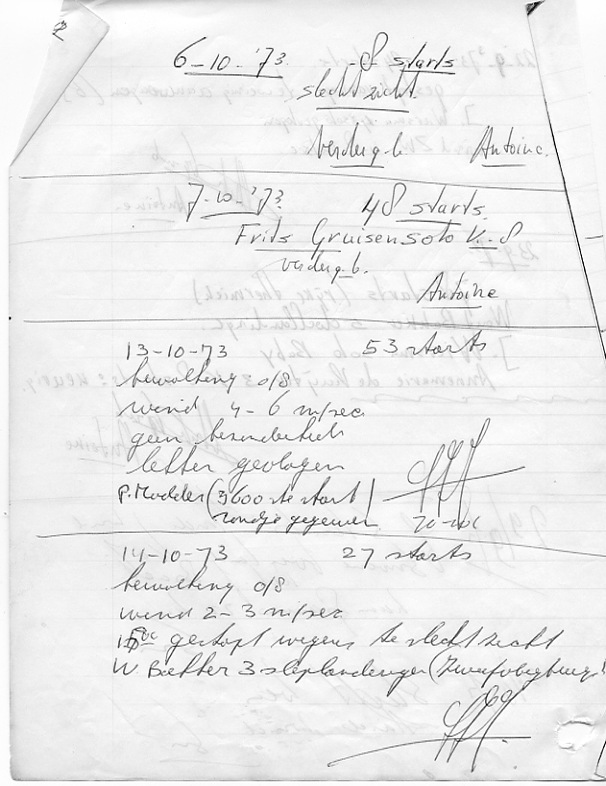 6-10-'73. 8 starts
slecht zicht.
Verder g.b. Antoine.
7-10-'73. 48 starts.
Frits Gruisen solo K-8
verder g.b.
Antoine
13-10-73 53 starts
bewolking 0/8
wind 4-6 m/sec
geen bezonderheden
lekker gevlogen
P. Modder (3600 ste start)
rondje gegeven
14-10-73 27 starts
bewolking 0/8
wind 2-3 m/sec
gestopt wegens te slecht zicht
W Bakker 3 sleplandingen